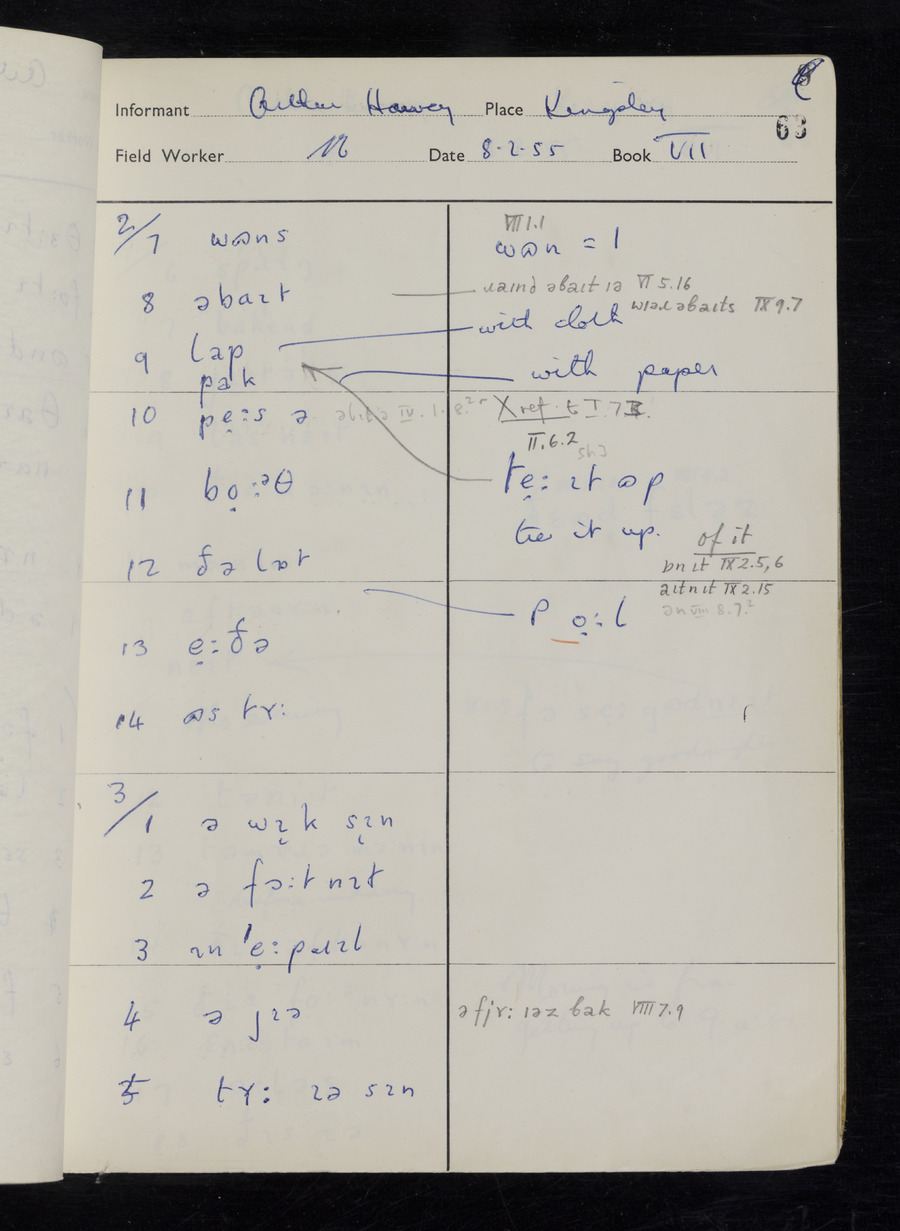 63
Informant Arthur Harvey Place Kingsley
Field Worker Date 8-2-55 Book VII
2/7 wɒns
VII 1.1
wɒn = 1
8 əbaɪt
ɹaɪnd əbaɪt ɪə VI 5.16
əbaɪts IX 9.7
9 lap
with cloth
pak
with paper
10 pẹːs ə
IV. 1. 8.
X ref. t I. 7
II. 6. 2
11 bọːᵊθ
tẹː ɪt ɒp
tie it up.
12 ðə lɒt
of it
ɒn ɪt IX 2.5, 6
aɪtn ɪt IX 2.15
ən VIII 8.7.²
P ọːl
13 ẹːðə
14 ɒs tɤː
3/1 ə wɪ̞k sɪ̞n
2 ə fɔːt nɪt
3 ɪn ˈẹːpɹɪl
4 ə jɪə
ə fjɤː ɪəz bak VIII 7.9
5 tɤː ɪə sɪn